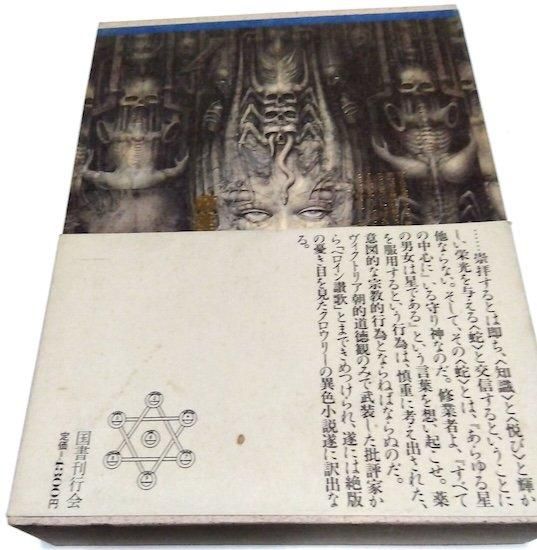 ……崇拝するとは即ち、〈知識〉と〈悦び〉と輝か
しい栄光を与える〈蛇〉と交信するということに
他ならない。そして、その〈蛇〉とは、『あらゆる星
の中心に』いる守り神なのだ。修業者よ、『すべて
の男女は星である』という言葉を想い起こせ。薬
を服用するという行為は、慎重に考え出された、
意図的な宗教的行為とならねばならぬのだ。
ヴィクトリア朝的道徳観のみで武装した批評家か
ら「ヘロイン讃歌」とまできめつけられ、遂には絶版
の憂き目を見たクロウリーの異色小説遂に訳出な
る。
国書刊行会
定価=4300円